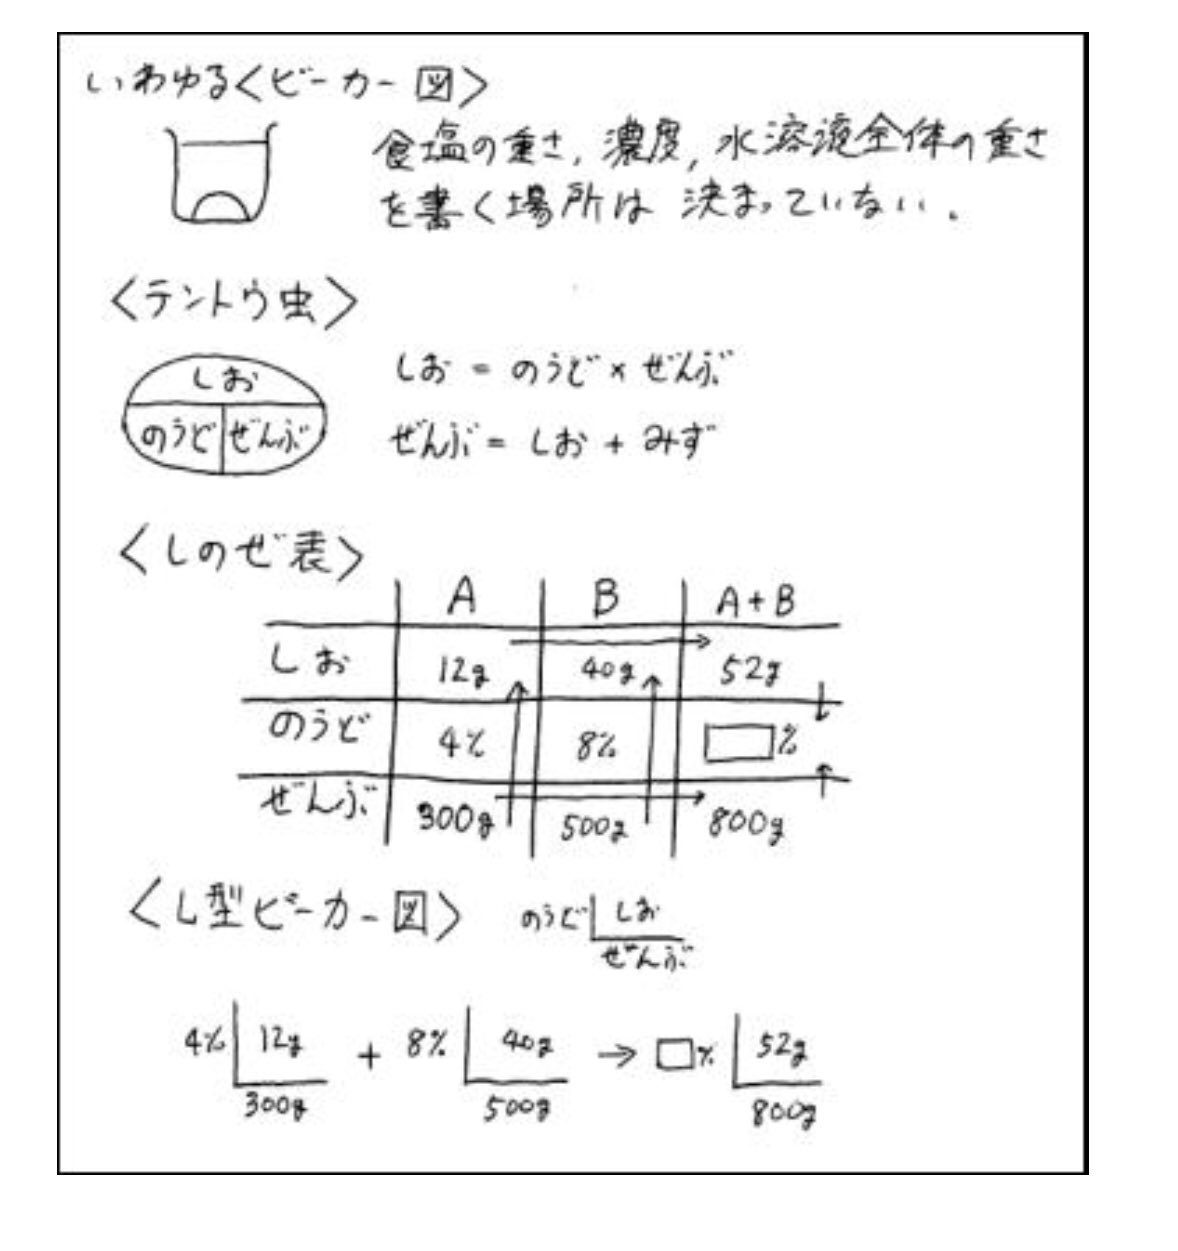 いわゆる<ビーカー図>
食塩の重さ, 濃度, 水溶液全体の重さ
を書く場所は 決まっていない。
<テントウ虫>
しお
のうど ぜんぶ
しお = のうど × ぜんぶ
ぜんぶ = しお + みず
<しのぜ表>
A B A+B
しお 12g 40g 52g
のうど 4% 8% □%
ぜんぶ 300g 500g 800g
<L型ビーカー図> のうど しお
ぜんぶ
4% 12g + 8% 40g → □% 52g
300g 500g 800g